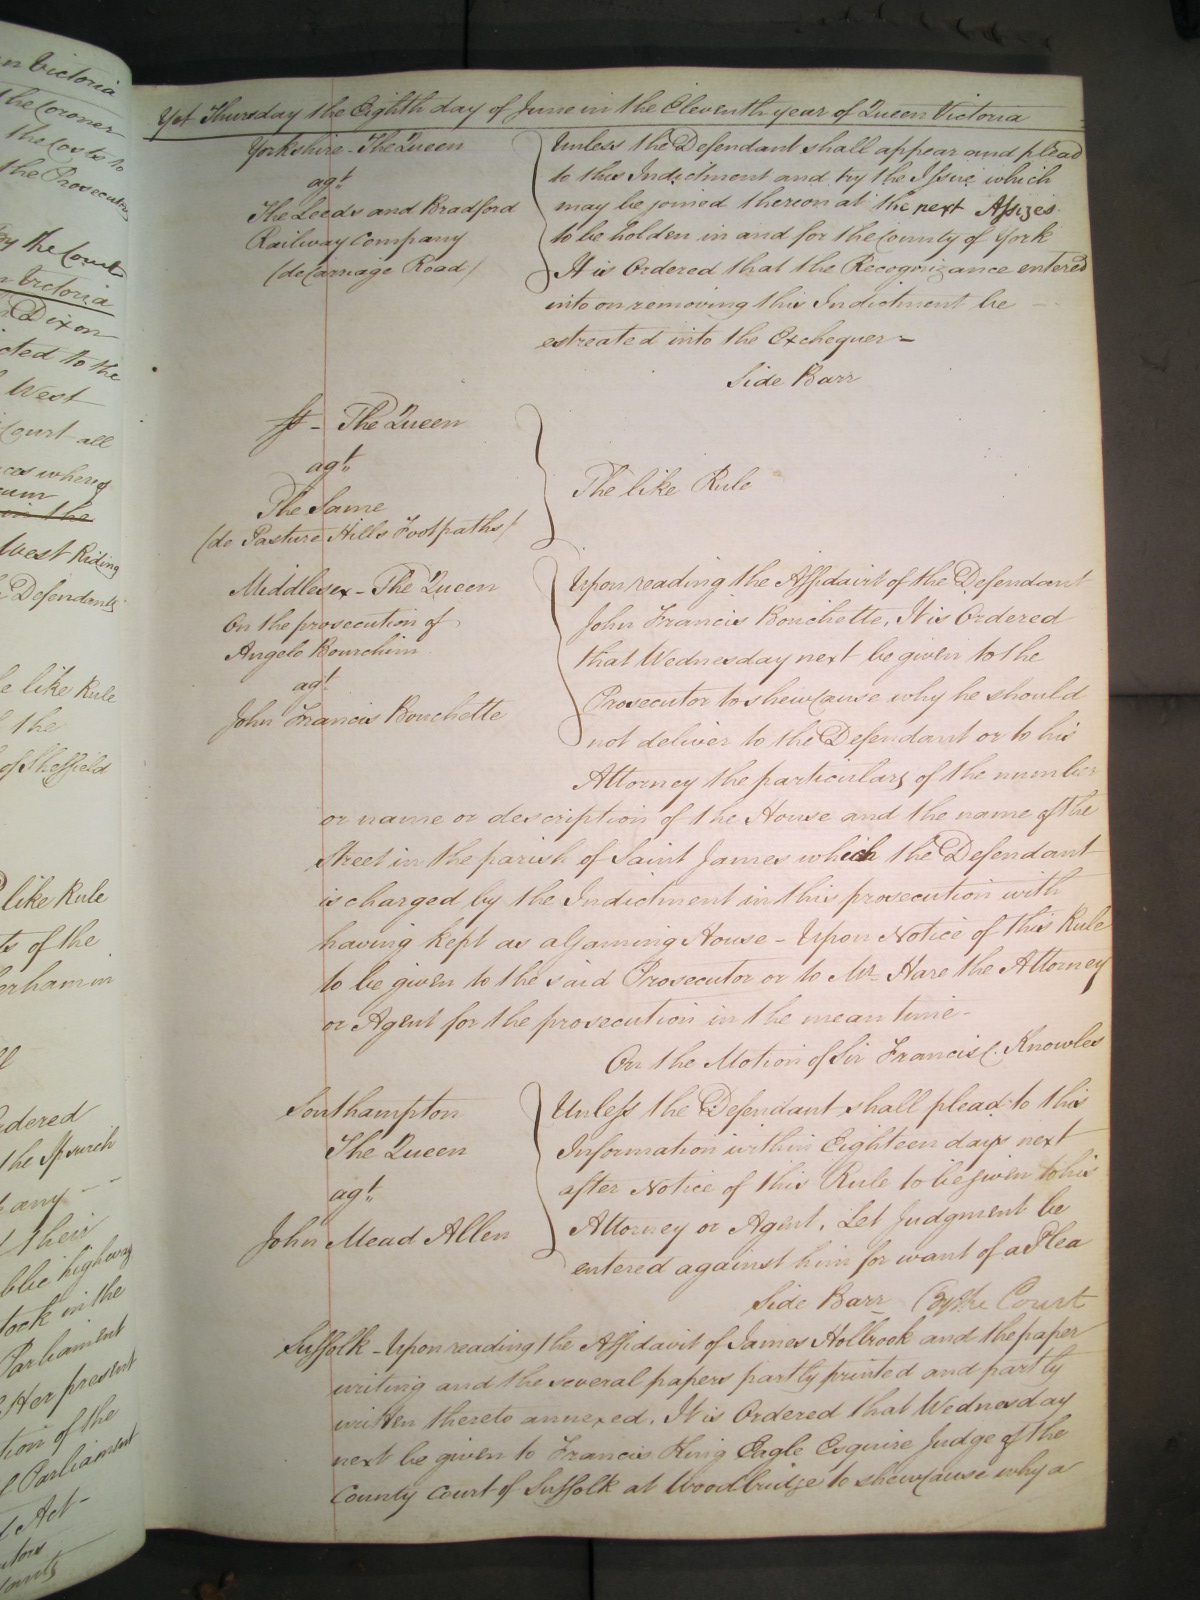 n Victoria
the Coroner
the Costs to
the Prosecutor
by the Court
n Victoria
Dixon
cted to the
West
Court all
cas whereof
cum
in the
West Riding
Defendants
e like Rule
the
of Sheffield
like Rule
ts of the
erham in
dered
the
any
their
blic highway
took in the
Parliament
Her present
tion of the
Parliament
Act
Yet Thursday the Eighth day of June in the Eleventh year of Queen Victoria
Yorkshire - The Queen
agt
The Leeds and Bradford
Railway Company
(de Carriage Road)
Unless the Defendant shall appear and plead
to this Indictment and try the Issue which
may be joined thereon at the next Assizes
to be holden in and for the County of York
It is Ordered that the Recognizance entered
into on removing this Indictment be
estreated into the Exchequer -
Side Barr
The Queen
agt
The Same
(de Pasture Hills Footpaths)
The like Rule
Middlesex - The Queen
On the prosecution of
Angelo Bourchim
agt
John Francis Bouchette
Upon reading the Affidavit of the Defendant
John Francis Bouchette, It is Ordered
that Wednesday next be given to the
Prosecutor to shew Cause why he should
not deliver to the Defendant or to his
Attorney the particulars of the number
or name or description of the House and the name of the
street in the parish of Saint James which the Defendant
is charged by the Indictment in this prosecution with
having kept as a Gaming House - Upon Notice of this Rule
to be given to the said Prosecutor or to Mr. Hare the Attorney
or Agent for the prosecution in the mean time -
On the Motion of Sir Francis C. Knowles
Southampton
The Queen
agt
John Mead Allen
Unless the Defendant shall plead to this
Information within Eighteen days next
after Notice of this Rule to be given to his
Attorney or Agent, Let Judgment be
entered against him for want of a Plea
Side Barr By the Court
Suffolk - Upon reading the Affidavit of James Holbrook and the paper
writing and the several papers partly printed and partly
written thereto annexed, It is Ordered that Wednesday
next be given to Francis King Eagle Esquire Judge of the
County Court of Suffolk at Woodbridge to shew Cause why a